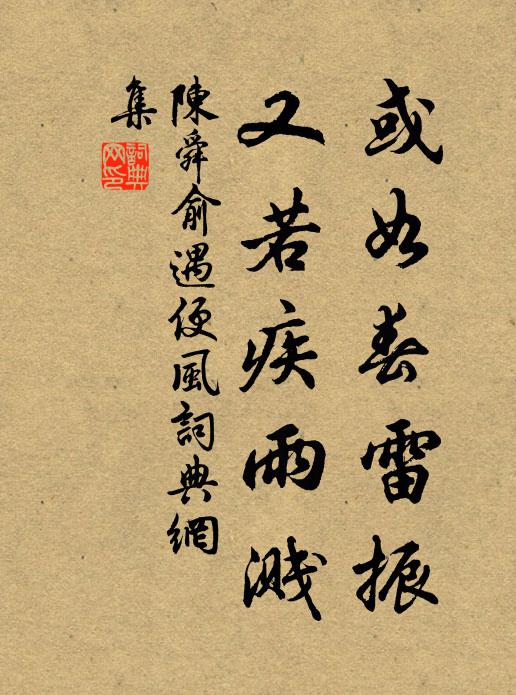 或如春雷振
又若疾雨溅
陳舜俞遇便風詞典網
集
詞典
网印